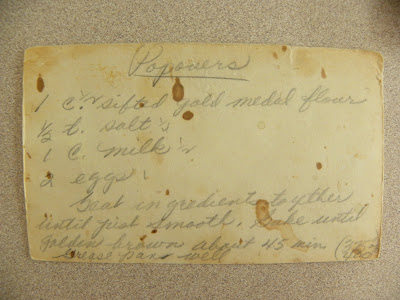 Popovers
1 C. 1/2 sifted gold medal flour
1/2 t. salt 1/3
1 C. milk 1/2
2 eggs 1
Beat ingredients together
until just smooth. Bake until
golden brown about 45 min
Grease pans well